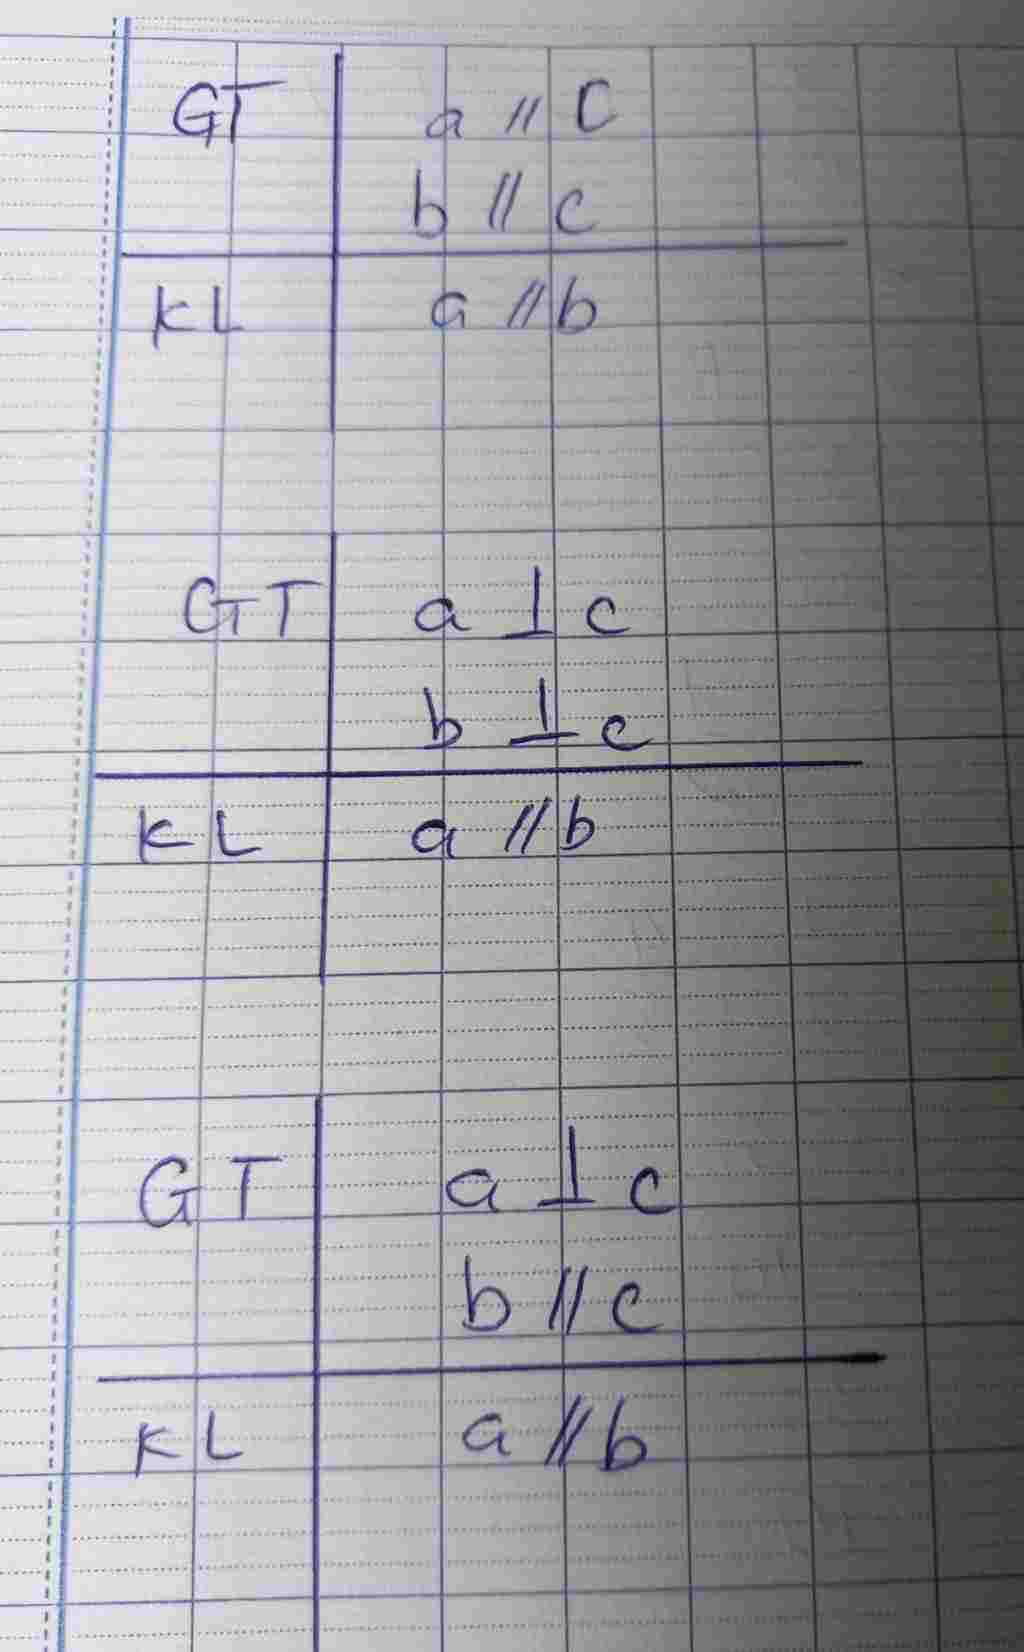 GT a // C
b // c
KL a // b
GT a ⊥ c
b ⊥ c
KL a // b
GT a ⊥ c
b // c
KL a // b